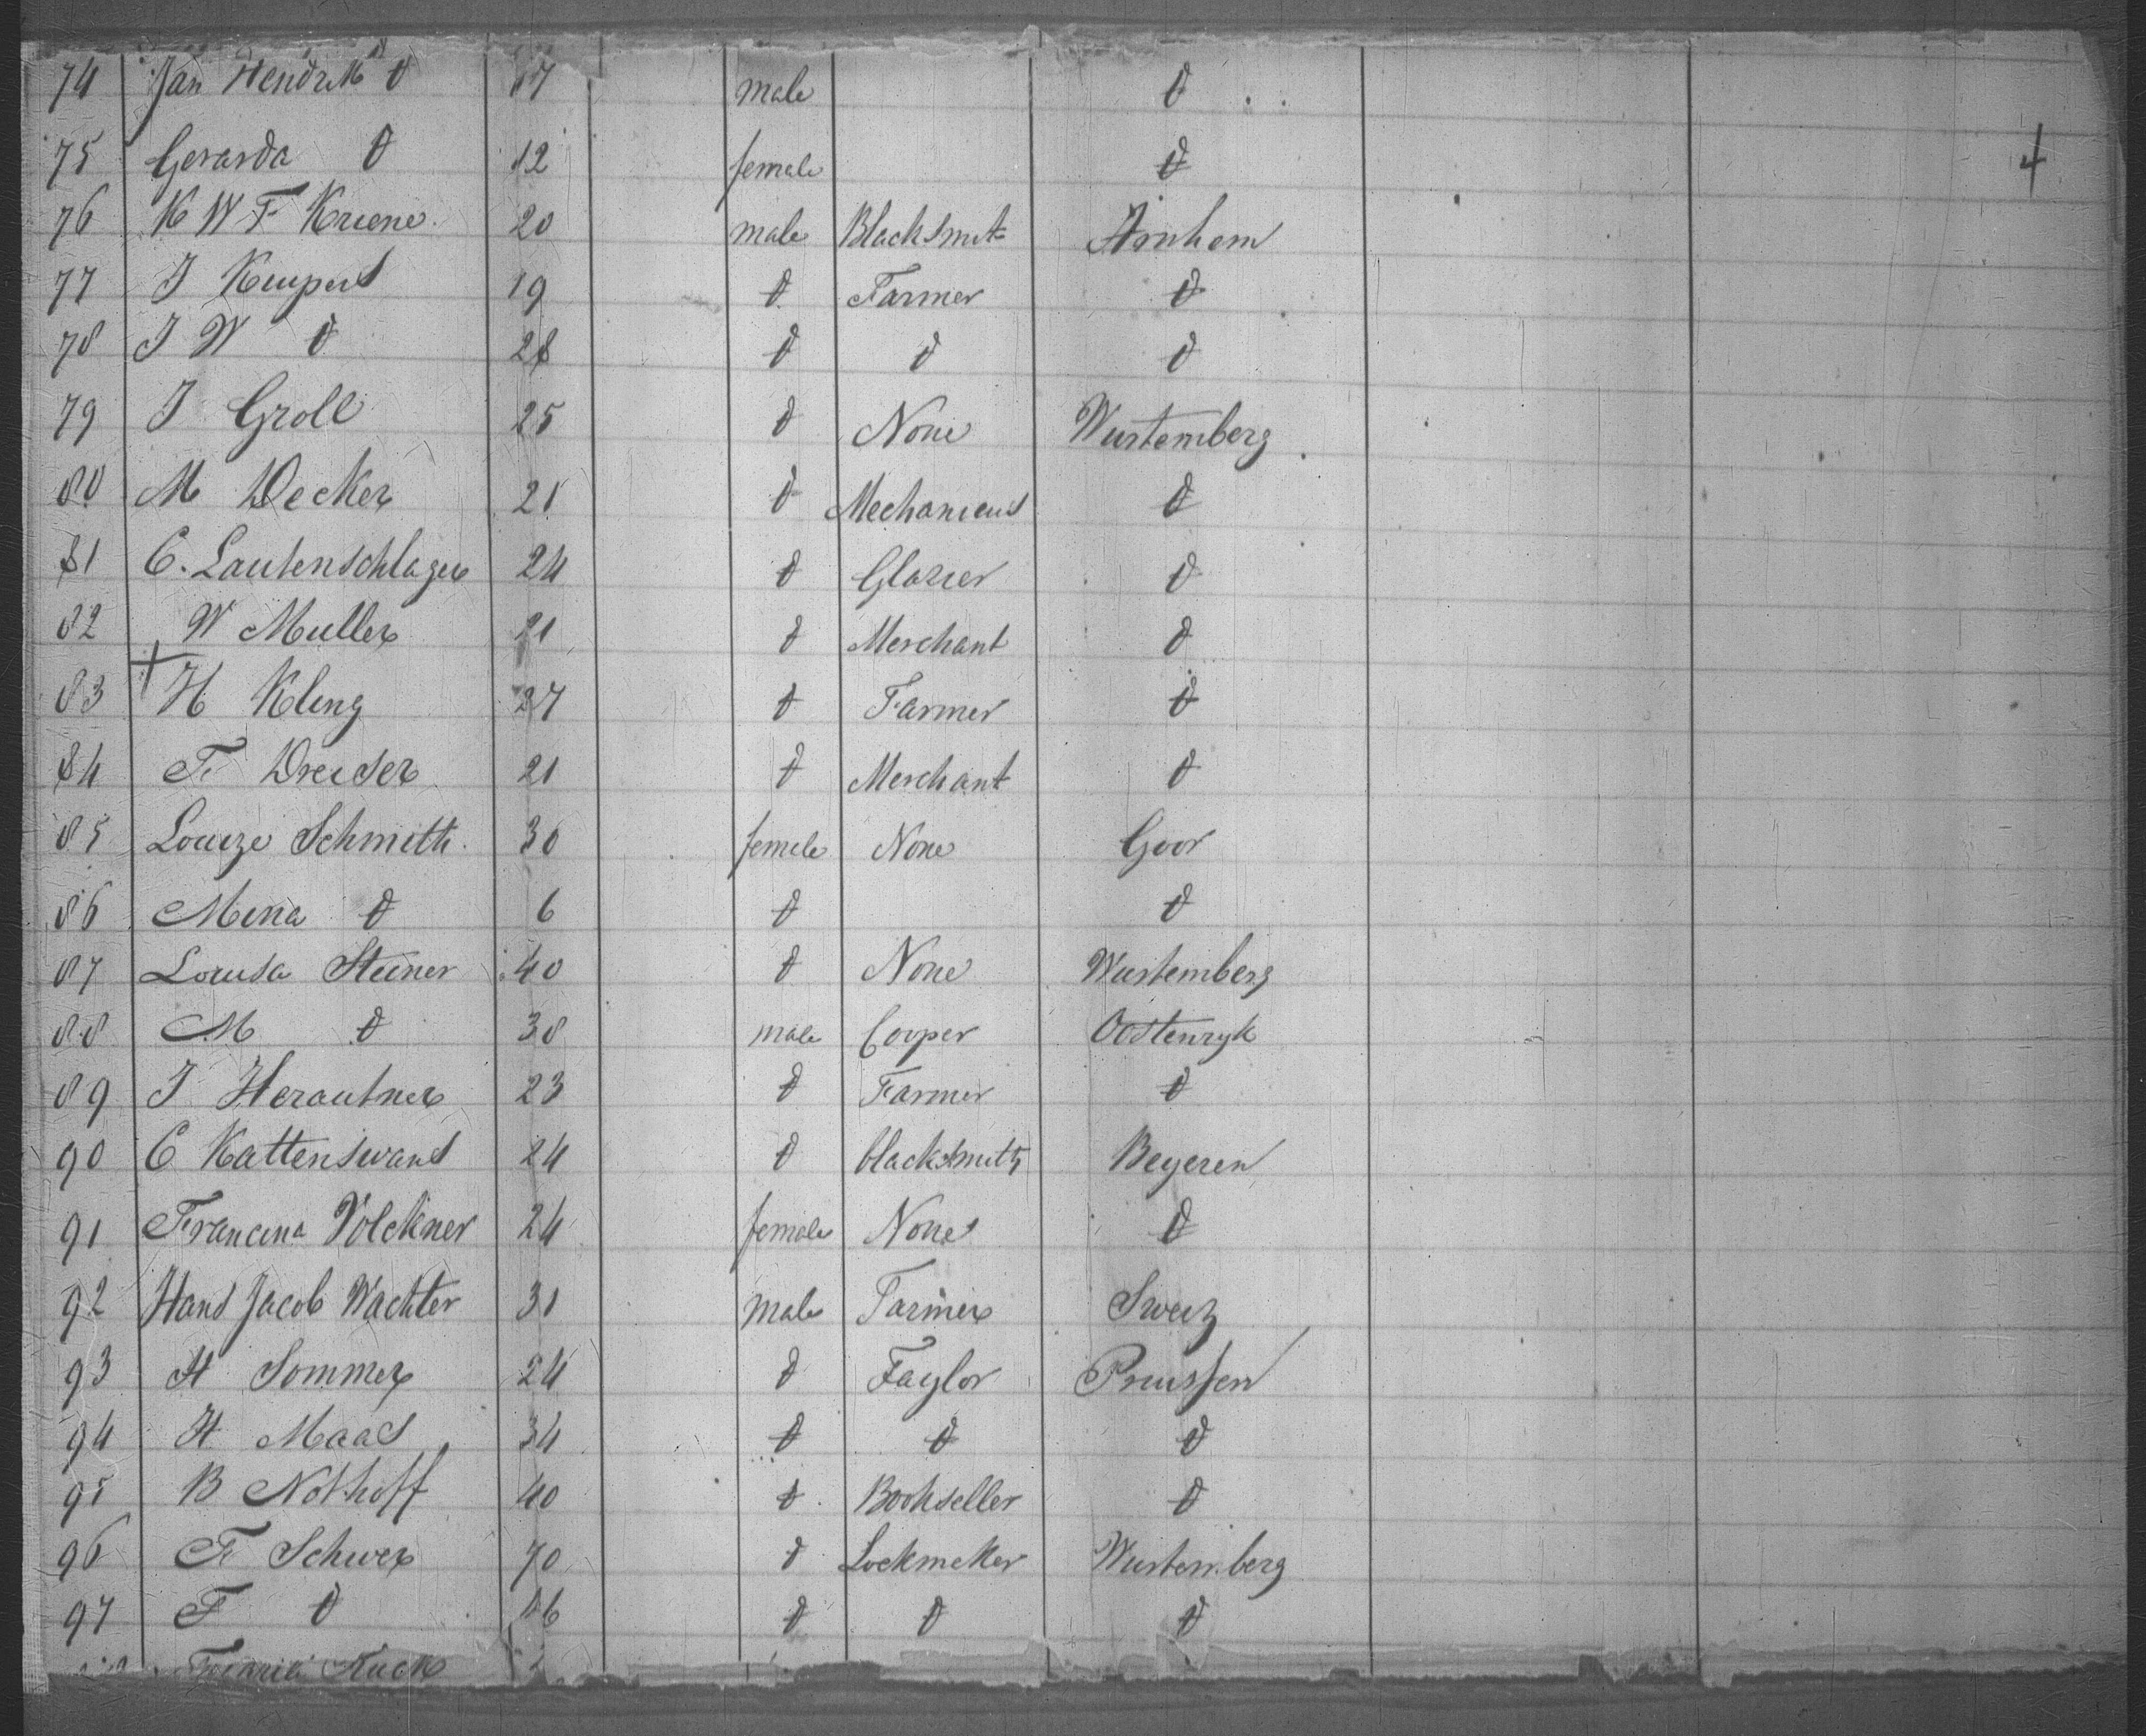 74 Jan Hendrik d 17 male d
75 Gerarda d 12 female d 4
76 K W F Kriene 20 male Blacksmit Arnhem
77 J Kuipers 19 d Farmer d
78 J W d 28 d d d
79 J Groll 25 d None Wurtemberg
80 M Decker 21 d Mechanicus d
81 C. Lautenschlager 24 d Glazier d
82 W Muller 21 d Merchant d
83 H Kling 27 d Farmer d
84 F Dreiser 21 d Merchant d
85 Louize Schmith 30 female None Goor
86 Mina d 6 d d
87 Louisa Steiner 40 d None Wurtemberg
88 M d 38 male Cooper Oostenryk
89 J Herautner 23 d Farmer d
90 C Kattenswans 24 d blacksmith Beyeren
91 Francina Volckner 24 female None d
92 Hans Jacob Wachter 31 male Farmer Sweiz
93 H Sommer 24 d Taylor Pruissen
94 H Maas 34 d d d
95 B Nothoff 40 d Bookseller d
96 F Schwer 70 d Lockmeker Wurtemberg
97 F d 16 d d d
Kuck